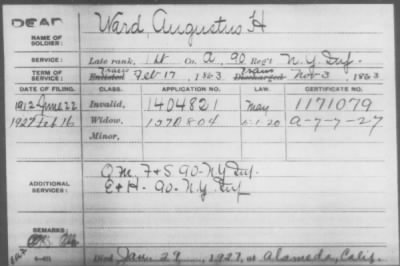 DEAD
NAME OF SOLDIER: Ward, Augustus H
SERVICE: Late rank, 1 Lt Co. A, 90 Reg't N.Y. Inf.
TERM OF SERVICE: Trans Enlisted Feb 17, 1863 Trans Discharged Nov 3, 1863
DATE OF FILING. CLASS. APPLICATION NO. LAW. CERTIFICATE NO.
1912 June 22 Invalid, 1404821 May 1171079
1927 Feb 16 Widow, 1570804 5-1-20 A-7-7-27
Minor,
ADDITIONAL SERVICES: Q.M. F+S 90-N.Y. Inf.
E+H- 90-N.Y. Inf
REMARKS:
Died Jan. 29, 1927, at Alameda, Calif.